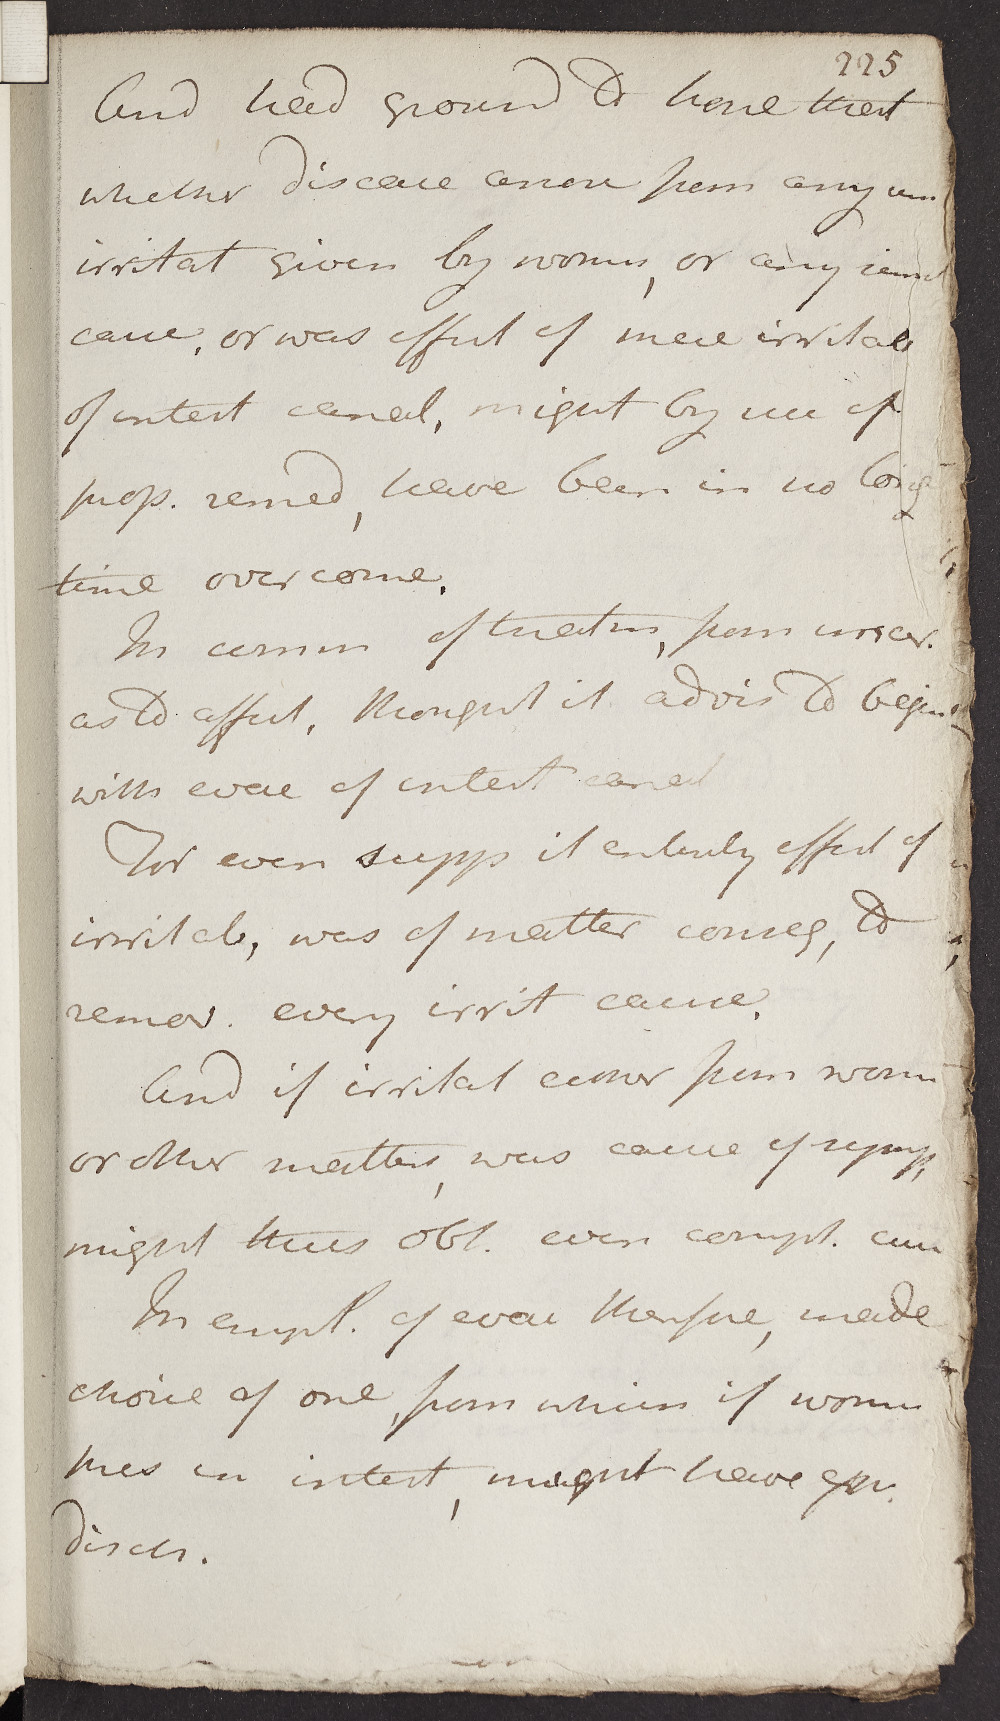 225
And had ground to hope that
whether disease arose from any
irritat given by worms, or any simil
cause, or was effect of mere irritab
of intest canal, might by use of
prop. remed, have been in no long
time overcome.
In comm of treatm, from uncer.
as to affect, thought it advis to begin
with evac of intest canal
For even supp it entirely effect of
irritab, was of matter conseq, to
remov. every irrit cause.
And if irritat either from worm
or other matters, was cause of symp,
might thus obt. even compl. cure
In empl. of evac therefore, made
choice of one, from which if worms
in intest, might have exp.
disch.